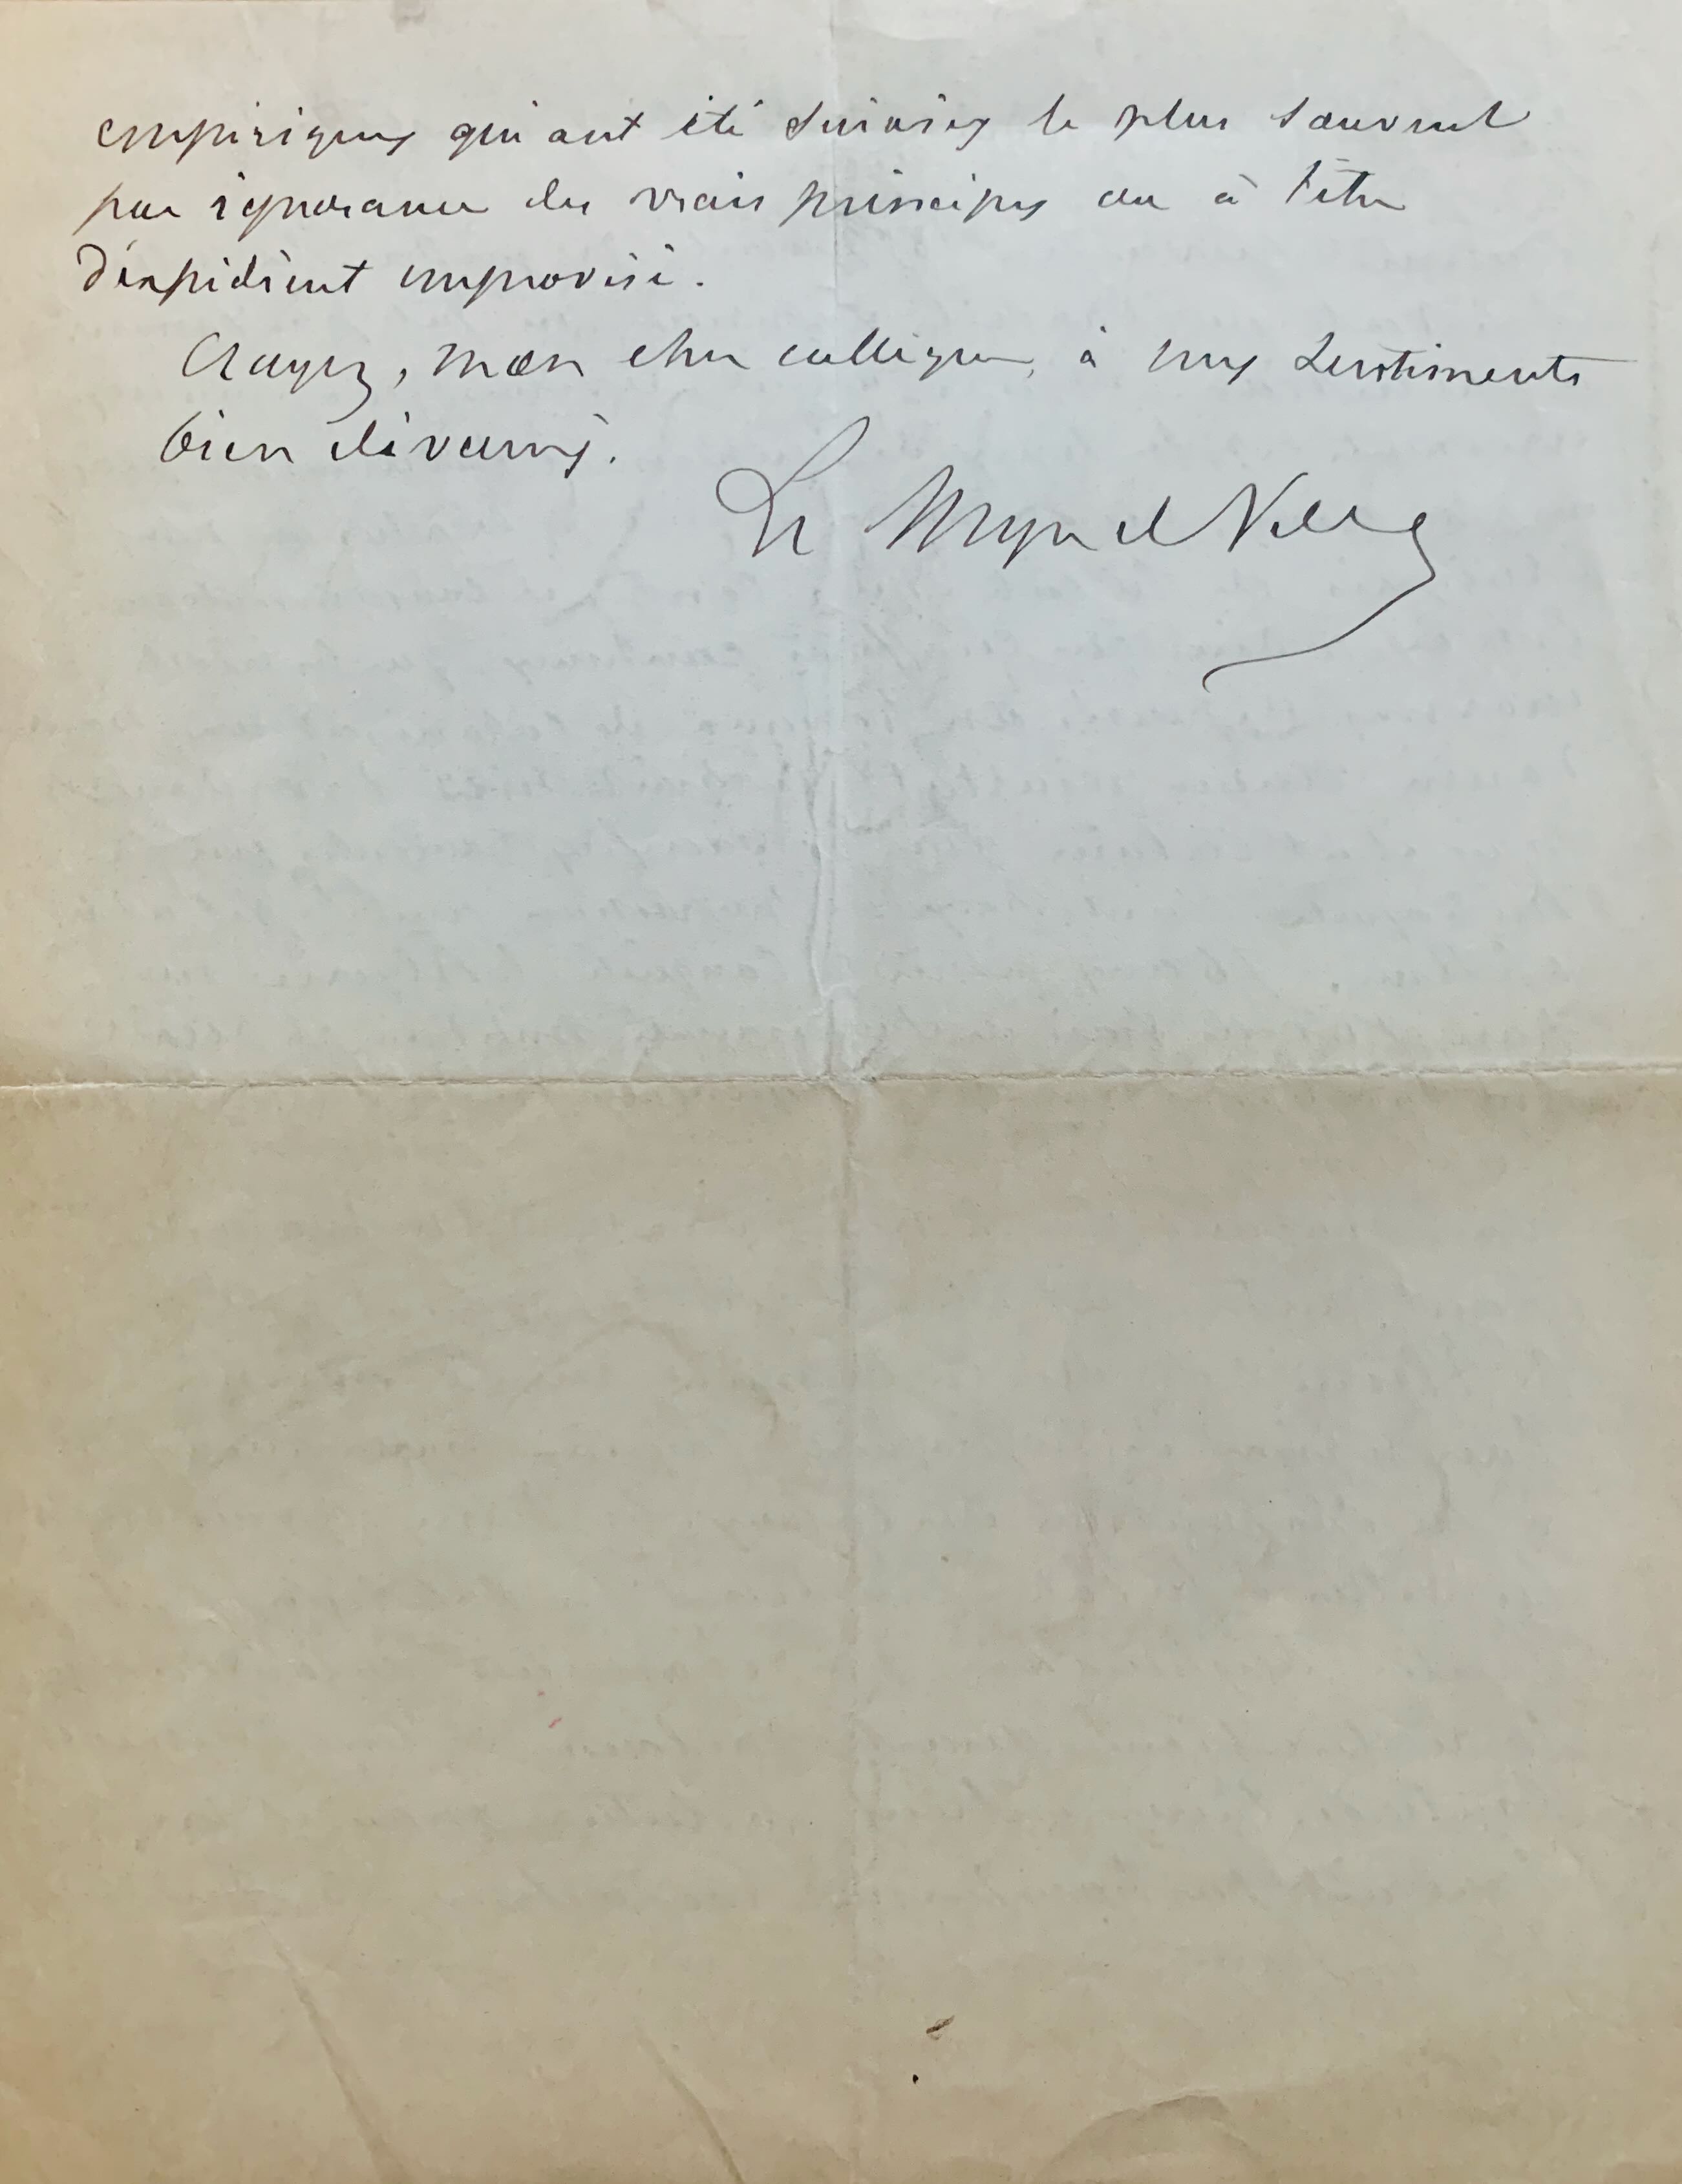 empiriques qui ont été suivies le plus souvent
par ignorance des vrais principes ou à titre
d'expédient improvisé.
Croyez, mon cher collègue, à mes sentiments
bien dévoués.
Le Myre de Vilers